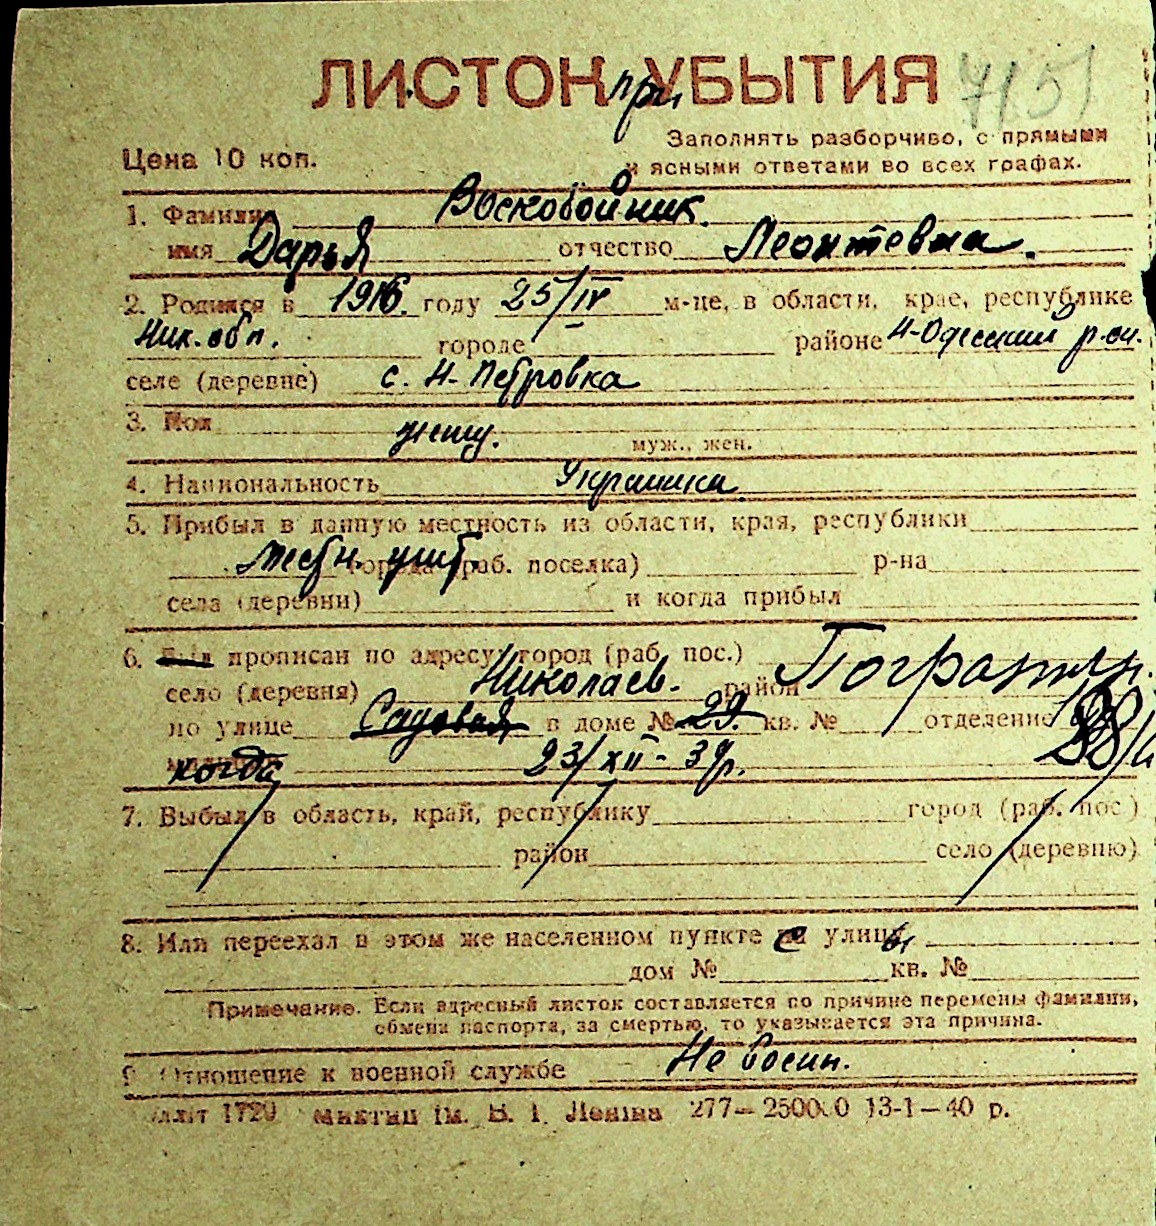 ЛИСТОК при УБЫТИЯ
Цена 10 коп.
Заполнять разборчиво, с прямыми
и ясными ответами во всех графах.
1. Фамилия Воскобойник.
имя Дарья отчество Леонтевна.
2. Родился в 1916. году 25/IV м-це, в области, крае, республике
Ник. обл. городе районе Н-Одесский р-он.
селе (деревне) с. Н-Петровка
3. Пол женщ. муж., жен.
4. Национальность Украинка
5. Прибыл в данную местность из области, края, республики
города (раб. поселка) р-на
села (деревни) и когда прибыл
6. Был прописан по адресу: город (раб. пос.)
село (деревня) Николаев. район
по улице Садовая в доме № 29. кв. № отделение
когда 23/XII-39р.
7. Выбыл в область, край, республику город (раб. пос.)
район село (деревню)
8. Или переехал в этом же населенном пункте с улицы
дом № кв. №
Примечание. Если адресный листок составляется по причине перемены фамилии,
обмена паспорта, за смертью, то указывается эта причина.
9. Отношение к военной службе Не воен.
1720 ім. В. І. Леніна 277—250000 13-1—40 р.